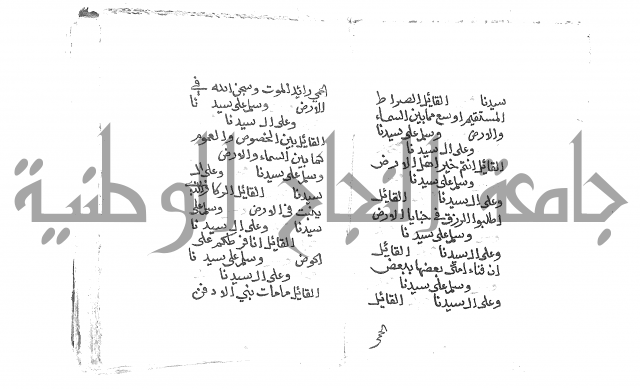 سيدنا القائل الصراط
المستقيم اوسع مما بين السماء
والارض وسلم على سيدنا
وعلى ال سيدنا
القائل انتم خير اهل الارض
وسلم على سيدنا
وعلى ال سيدنا القائل
اطلبوا الرزق في خبايا الارض
وسلم على سيدنا
وعلى ال سيدنا القائل
ان فناء امتي بعضها ببعض
وسلم على سيدنا
وعلى ال سيدنا القائل
الحمى
الحمى رايد الموت وسجن الله في
الارض وسلم على سيدنا
وعلى ال سيدنا
القائل بين الخصوص والعموم
كما بين السماء والارض
وسلم على سيدنا وعلى ال
سيدنا القائل الركاز الذي
ينبت في الارض وسلم على
سيدنا وعلى ال سيدنا
القائل انا فرطكم على
الحوض وسلم على سيدنا
وعلى ال سيدنا
القائل ما مات نبي الا دفن
جامعة النجاح الوطنية